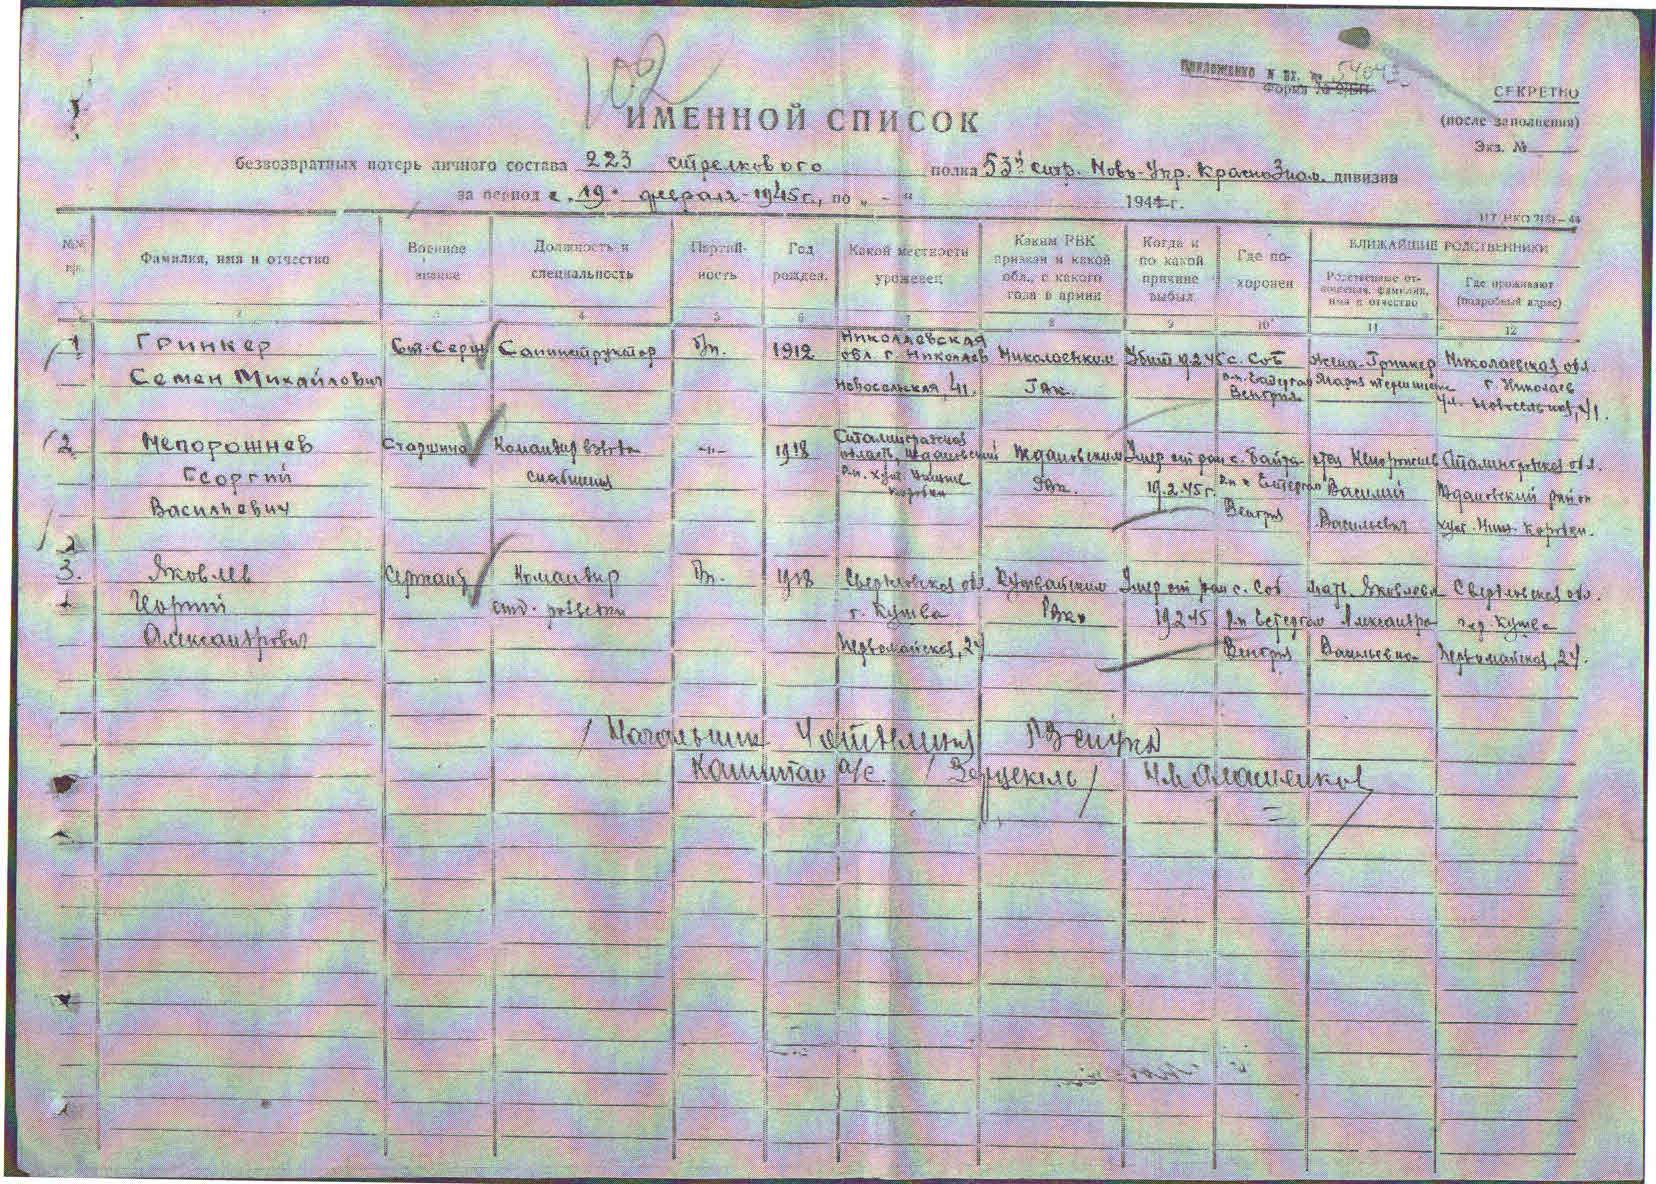 102
Приложение к вх. № 54043
Форма № 2/БП
СЕКРЕТНО
(после заполнения)
Экз. №
ИМЕННОЙ СПИСОК
безвозвратных потерь личного состава 223 стрелкового полка 53й стр. Ново-Укр. КрасноЗнам. дивизии
за период с 19 февраля 1945 г., по „ - “ 1944 г.
№№ п/п.
Фамилия, имя и отчество
Военное звание
Должность и специальность
Партийность
Год рожден.
Какой местности уроженец
Каким РВК призван и какой обл., с какого года в армии
Когда и по какой причине выбыл
Где похоронен
БЛИЖАЙШИЕ РОДСТВЕННИКИ
Родственные отношения, фамилия, имя и отчество
Где проживают (подробный адрес)
2 3 4 5 6 7 8 9 10 11 12
1 Гринкер Ст. Серж Санинструктор б/п. 1912 Николаевская обл. г. Николаев Николаевким Убит 19.2.45 с. Соб жена Гринкер Николаевская обл.
Семен Михайлович Новосельская, 41. ГВК. Венгрия Мария г. Николаев
ул. Новосельная, 41.
2 Непорожнев Старшина Командир взвода -"- 1918 Сталинградская область Ждановским Умер от ран с. Байта отец Непорожнев Сталинградская обл.
Георгий снабжения РВК. 19.2.45 г. Василий Ждановский район
Васильевич Венгрия Васильевич хут. Ниж. Коробки.
3. Яковлев Сержант Командир б/п. 1918 Свердловская обл. Кушвинским Умер от ран с. Соб мать Яковлева Свердловская обл.
Юрий отд. разведки г. Кушва РВК 19.2.45 Александра гор Кушва
Александрович Первомайская, 24 Венгрия Васильевна Первомайская, 24.
Начальник
Капитан а/с.